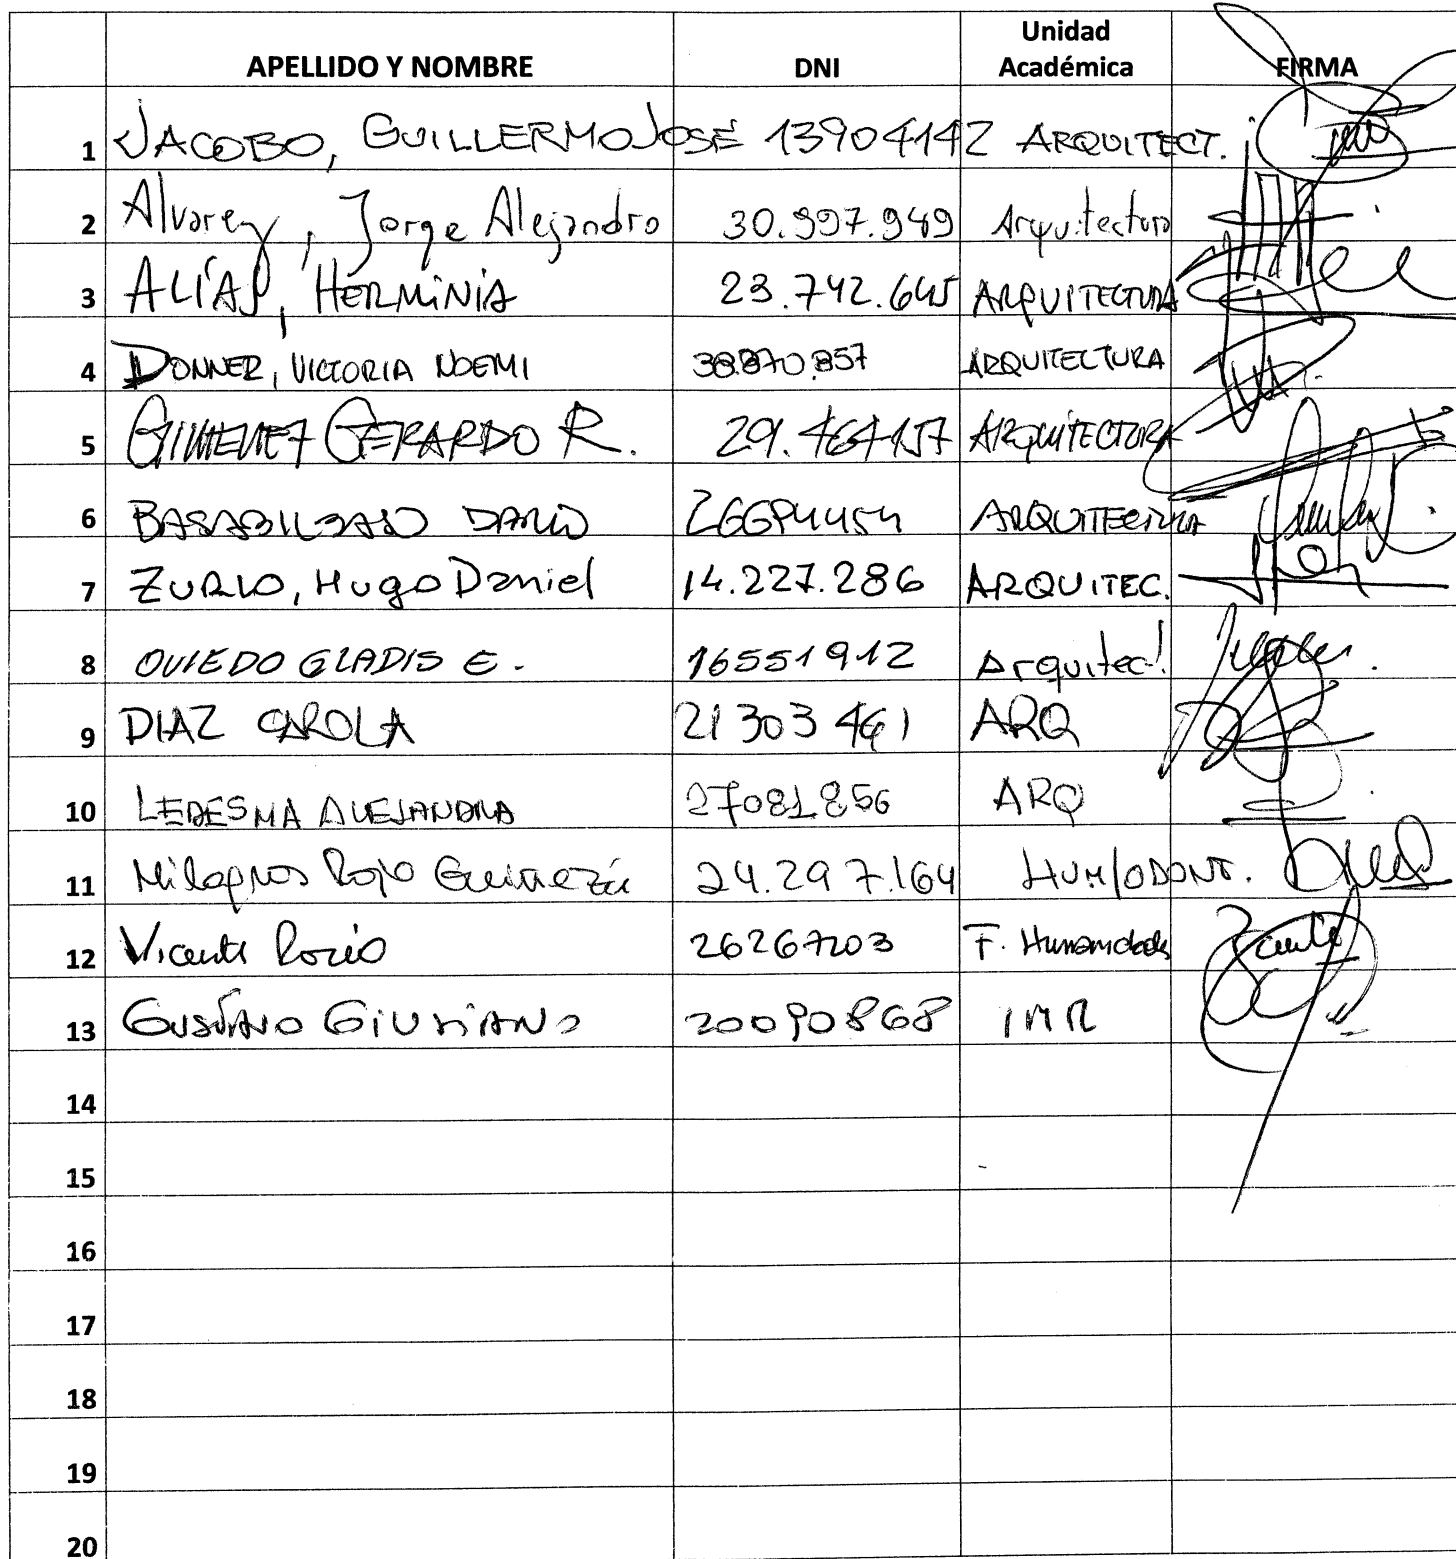 APELLIDO Y NOMBRE DNI Unidad Académica FIRMA
1 JACOBO, GUILLERMO JOSÉ 13904142 ARQUITECT.
2 Alvarez, Jorge Alejandro 30.997.949 Arquitectura
3 ALÍAS, HERMINIA 23.742.645 ARQUITECTURA
4 DONNER, VICTORIA NOEMI 38.870.857 ARQUITECTURA
5 GIMENEZ GERARDO R. 29.464157 ARQUITECTURA
6 BASABILBASO DARIO ARQUITECTURA
7 ZURLO, Hugo Daniel 14.227.286 ARQUITEC.
8 OVIEDO GLADIS E. 16551912 Arquitec.
9 DIAZ CAROLA 21303461 ARQ
10 LEDESMA ALEJANDRA 27081856 ARQ
11 Milagros Rojo Guiñazú 24.297.164 HUM/ODONT.
12 Vicente Rocío 26267203 F. Humanidades
13 GUSTAVO GIUSIANO 20090868
14
15
16
17
18
19
20